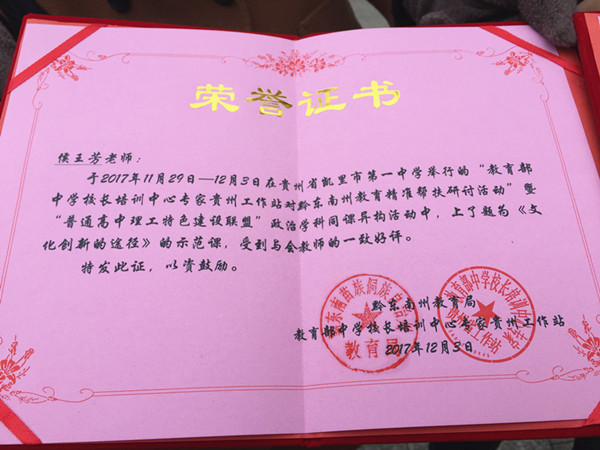 荣誉证书
侯王芳老师：
于2017年11月29日—12月3日在贵州省凯里市第一中学举行的“教育部
中学校长培训中心专家贵州工作站对黔东南州教育精准帮扶研讨活动”暨
“普通高中理工特色建设联盟”政治学科同课异构活动中，上了题为《文
化创新的途径》的示范课，受到与会教师的一致好评。
特发此证，以资鼓励。
黔东南州教育局
教育部中学校长培训中心专家贵州工作站
2017年12月3日
东南苗族侗族自
教育局
教育部中学校长培训中
工作站